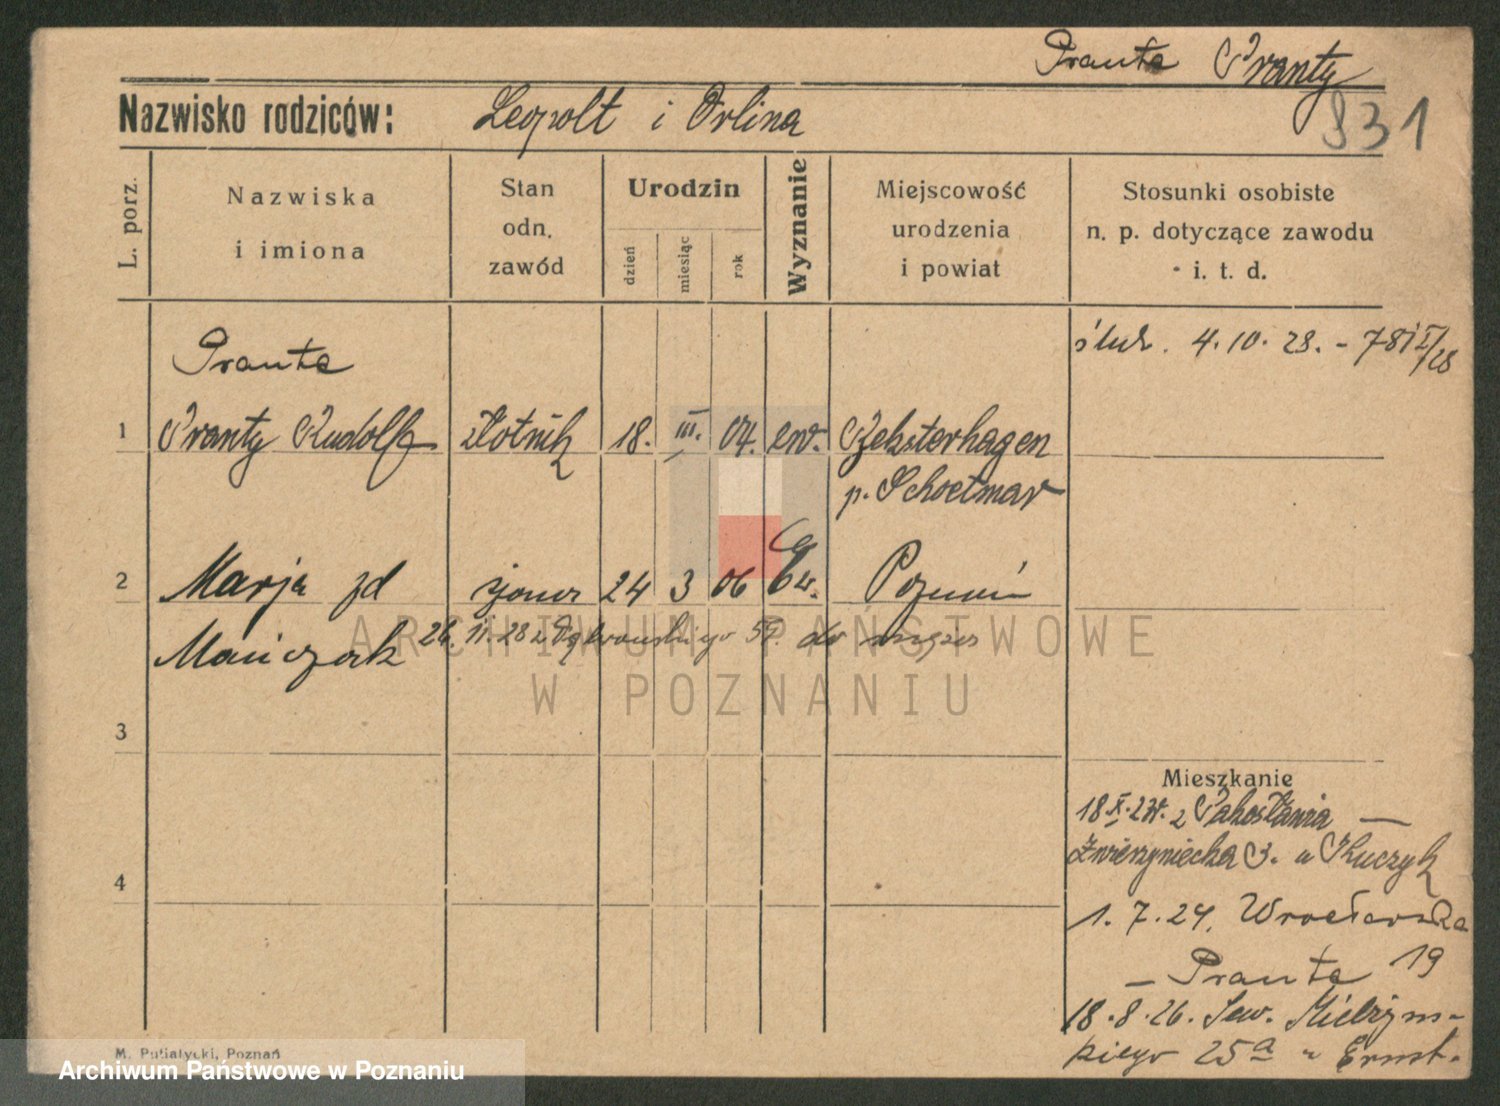 Prante Pranty
831
Nazwisko rodziców: Leopolt i Orlina
L. porz.
Nazwiska i imiona
Stan odn. zawód
Urodzin
dzień
miesiąc
rok
Wyznanie
Miejscowość urodzenia i powiat
Stosunki osobiste n. p. dotyczące zawodu i. t. d.
ślub. 4. 10. 28. -
Prante
1 Pranty Rudolf złotnik 18. III. 04. ew.
p. Schoetmar
2 Marja zd żona 24 3 06 Ew. Poznań
Mańczak 26. 11. 28 z Dąbrowskiego do męża
3
4
Mieszkanie
18 X. z Pakosławia —
Zwierzyniecka 3. u Kuczyk
1. 7. 24. Wrocławska
19
— Prante
18. 8. 26. Sew. Mielżyń-
skiego 25a u Ernst.
M. Putiatycki, Poznań
ARCHIWUM PAŃSTWOWE
W POZNANIU
Archiwum Państwowe w Poznaniu